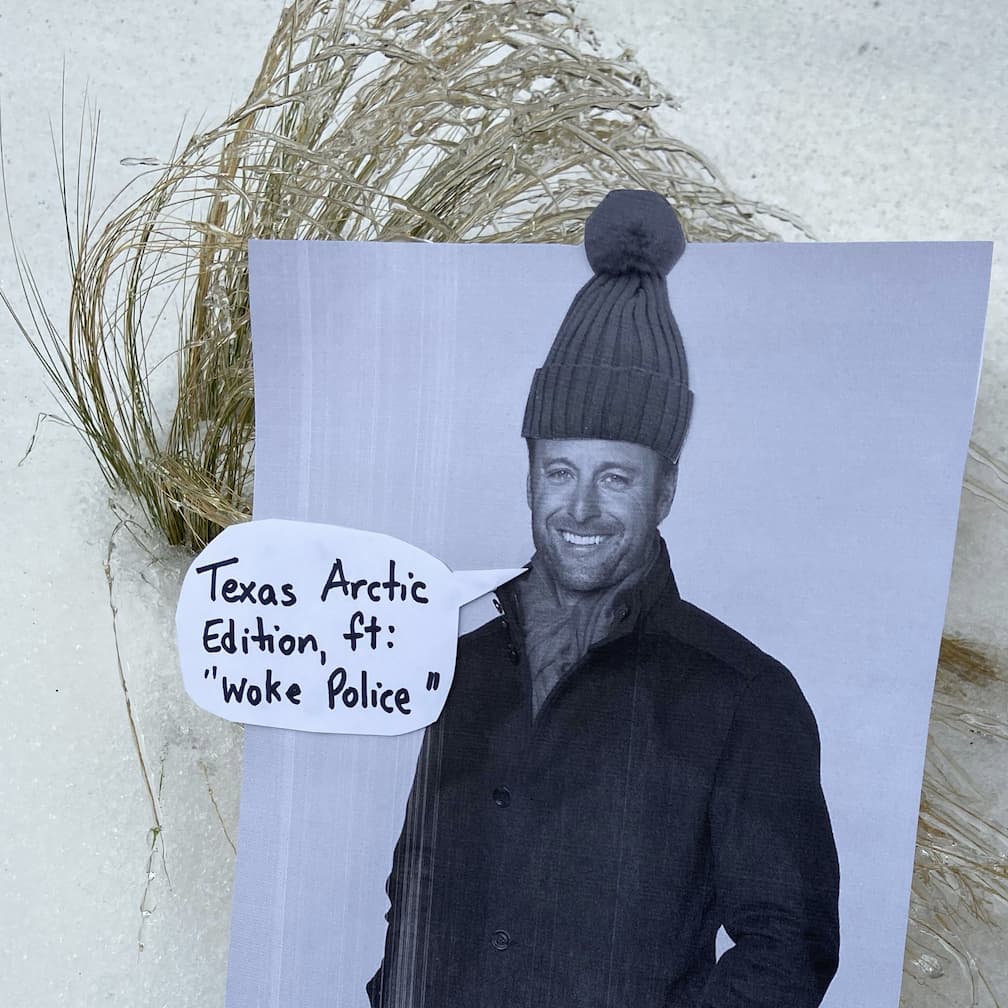 Texas Arctic
Edition, ft:
"Woke Police"